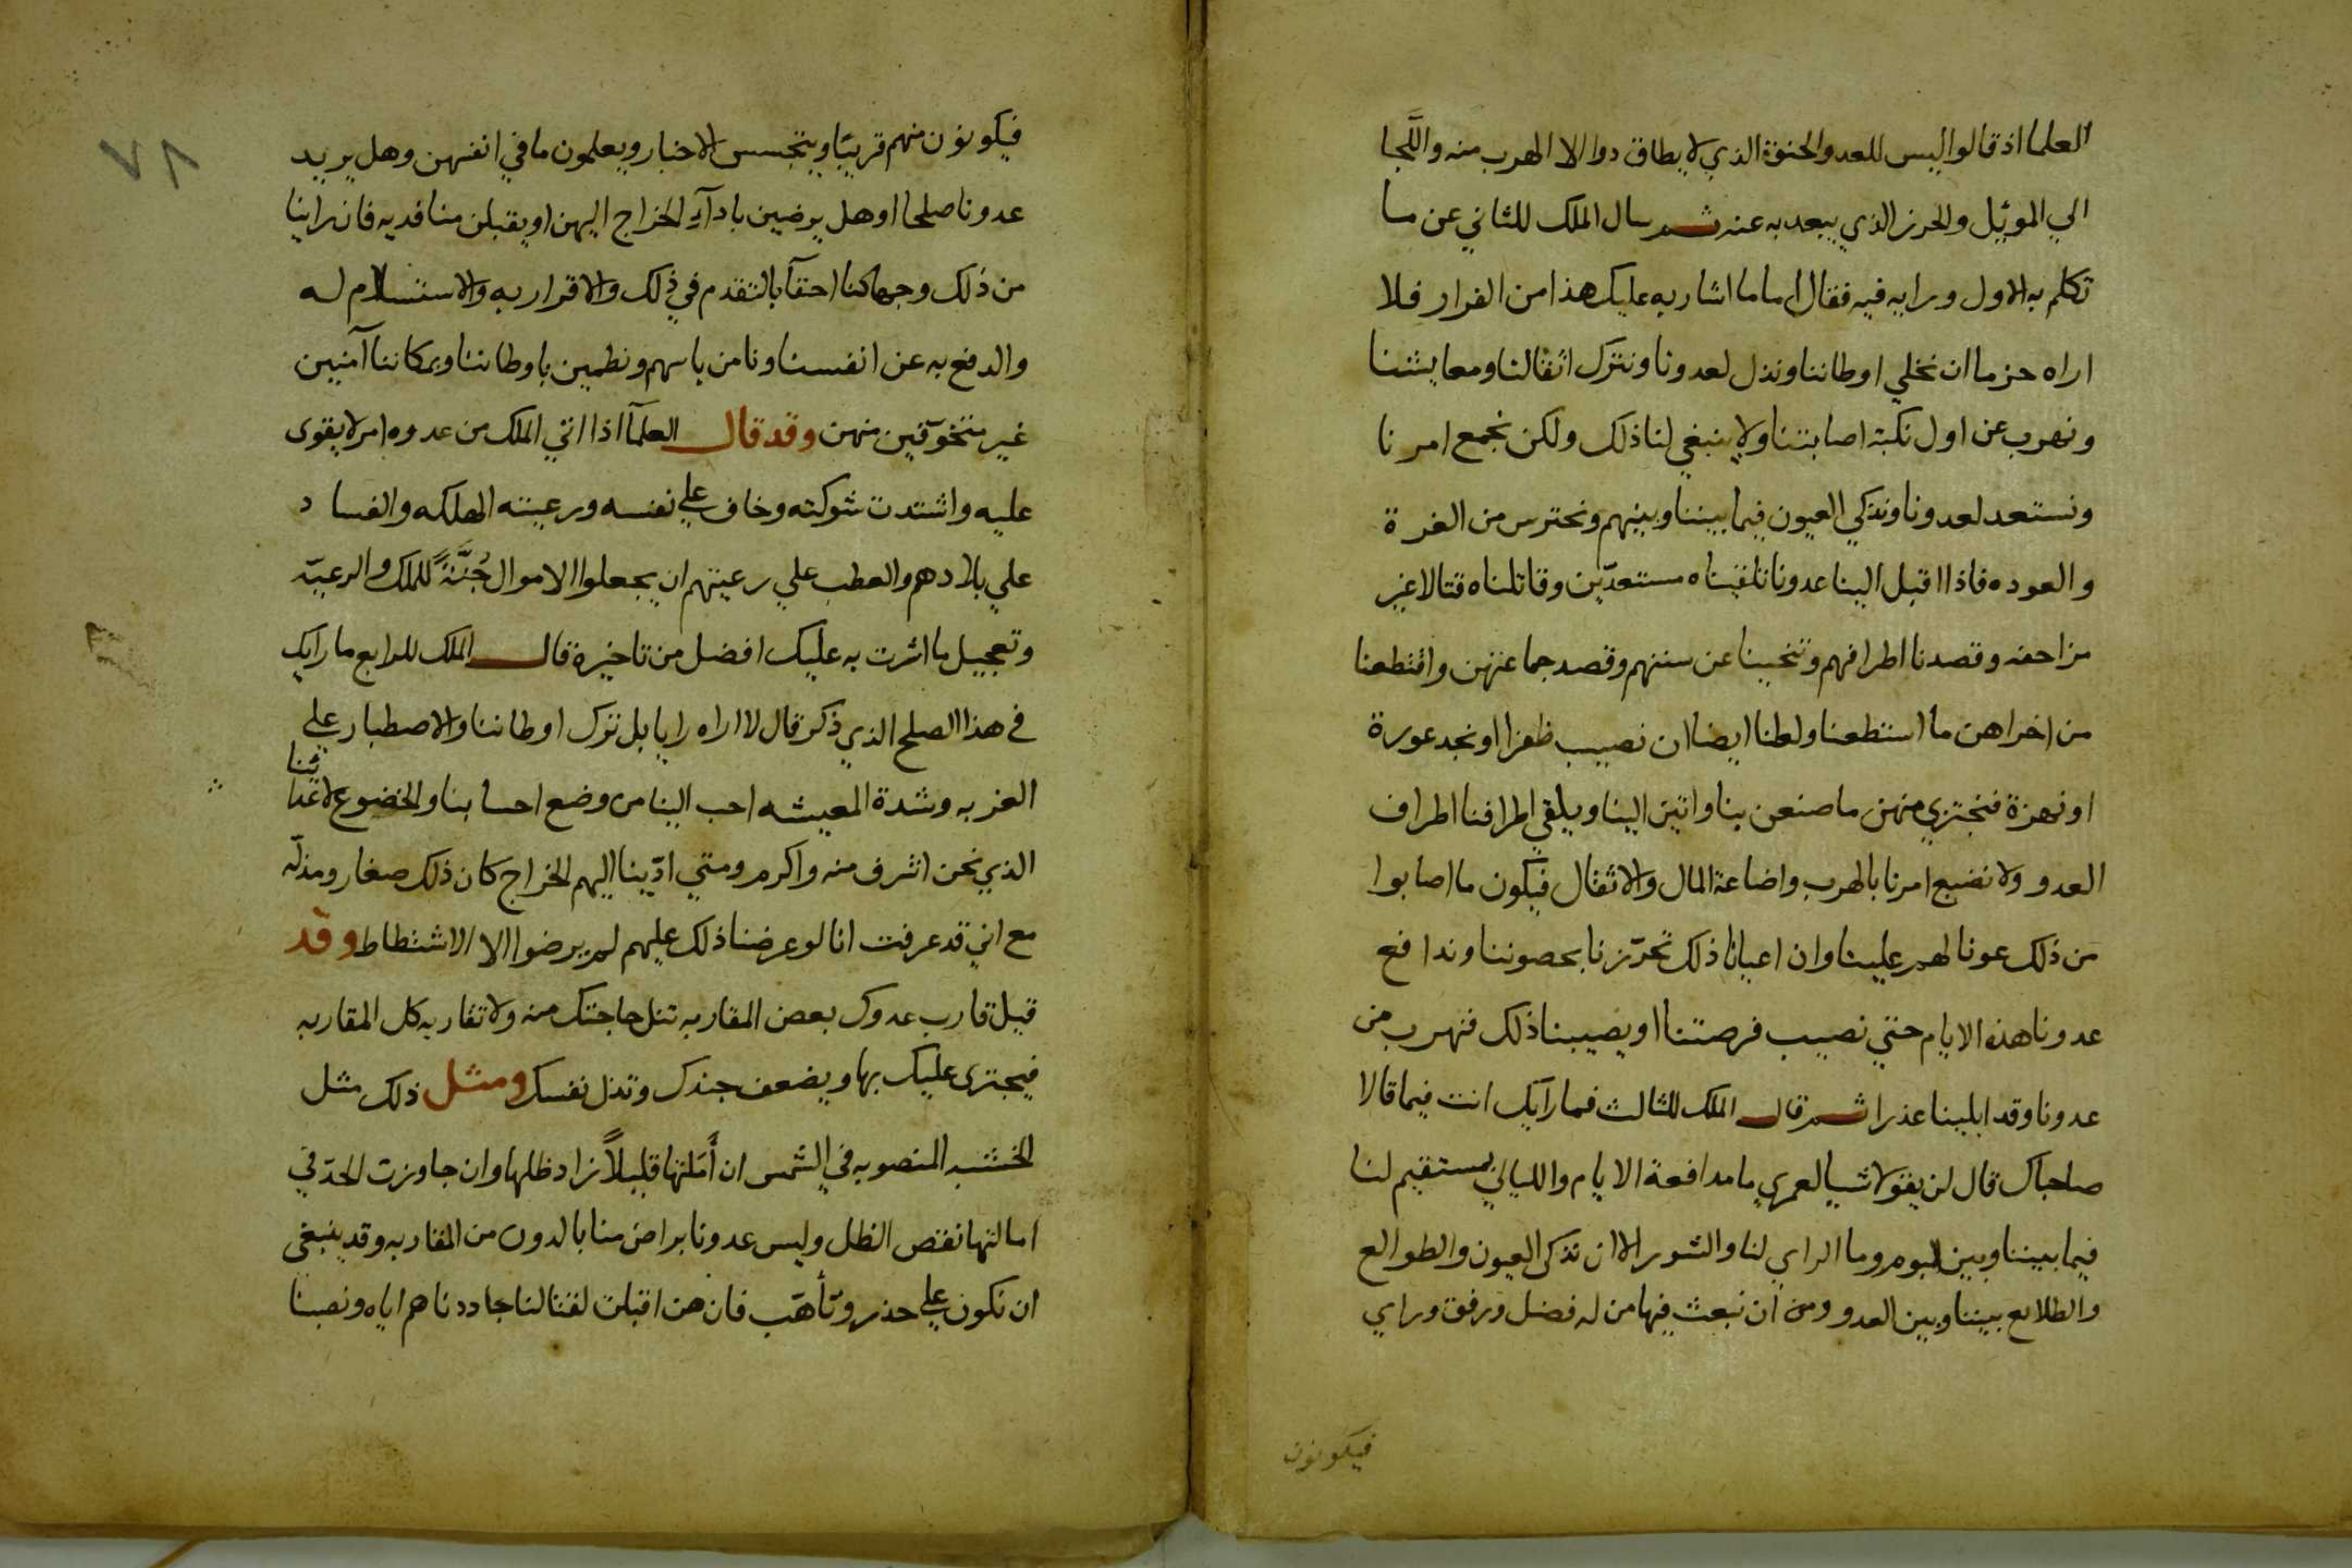 العلما اذ قالوا ليس للعدو الحنق الذي لا يطاق دوا الا الهرب منه واللَّجا
الي الموئل والحرز الذي يبعد به عنه ثم سال الملك للثاني عن ما
تكلم به الاول ورايه فيه فقال اما ما اشار به عليك هذا من الفرار فلا
اراه حزما ان نخلي اوطاننا ونذل لعدونا ونترك اثقالنا ومعايشنا
ونهرب عن اول نكبة اصابتنا ولا ينبغي لنا ذلك ولكن نجمع امرنا
ونستعد لعدونا ونذكي العيون فيما بيننا وبينهم ونحترس من الغرة
والعوده فاذا اقبل الينا عدونا تلقيناه مستعدّين وقاتلناه قتالا غير
مزاحفه وقصدنا اطرافهم وتنحينا عن سننهم وقصد جماعتهن واقتطعنا
من اخراهن ما استطعنا ولعلنا ايضا ان نصيب ظفرا او نجد عورة
او نهزة فنجتزي منهن ما صنعن بنا واتين الينا ويلقي اطرافنا اطراف
العدو ولا نضيع امرنا بالهرب واضاعة المال والاثقال فيكون ما اصابوا
من ذلك عونا لهم علينا وان اعيانا ذلك تحرّزنا بحصوننا وندافع
عدونا هذه الايام حتي نصيب فرصتنا او يصيبنا ذلك فنهرب من
عدونا وقد ابلينا عذرا ثم قال الملك للثالث فما رايك انت فيما قالا
صاحباك قال لن يقولا شيا لعمري ما مدافعة الايام والليالي بمستقيم لنا
فيما بيننا وبين البوم وما الراي لنا والشور الا ان نذكى العيون والطوالع
والطلايع بيننا وبين العدو ومن ان نبعث فيها من له فضل ورفق وراي
فيكونون
٧٨
فيكونون منهم قريبًا ويتجسس الاخبار ويعلمون ما في انفسهن وهل يريد
عدونا صلحا او هل يرضين باداء الخراج اليهن او يقبلن منا فديه فان راينا
من ذلك وجها كنا احقّا بالتقدم في ذلك والاقرار به والاستسلام له
والدفع به عن انفسنا ونامن باسهم ونطمين باوطاننا وبمكاننا آمنين
غير متخوّفين منهن وقد قال العلمآ اذا اتي الملك من عدوه امر لا يقوى
عليه واشتدت شوكته وخاف علي نفسه ورعيته الهلكه والفساد
علي بلادهم والعطب علي رعيتهم ان يجعلوا الاموال جُنَّةً للملك والرعيّه
وتعجيل ما اثرت به عليك افضل من تاخيره قال الملك للرابع ما رايك
في هذا الصلح الذي ذكر قال لا اراه رايا بل نترك اوطاننا والاصطبار علي
الغربه وشدة المعيشه احب الينا من وضع احسابنا والخضوع لاعدائنا
الذي نحن اشرف منه واكرم ومتي ادّينا اليهم الخراج كان ذلك صغار ومذلّه
مع اني قد عرفت انا لو عرضنا ذلك عليهم لم يرضوا الا الاشتطاط وقد
قيل قارب عدوك بعض المقاربه تنل حاجتك منه ولا تقاربه كل المقاربه
فيجترى عليك بها ويضعف جندك وتذل نفسك ومثل ذلك مثل
الخشبه المنصوبه في الشمس ان أَمَلتها قليلاً زاد ظلها وان جاوزت الحدّ في
امالتها نقص الظل وليس عدونا براض منا بالدون من المقاربه وقد ينبغي
ان نكون علي حذر وتأهّب فان هن اقبلن لقتالنا جاددناهم اياه ونصبنا